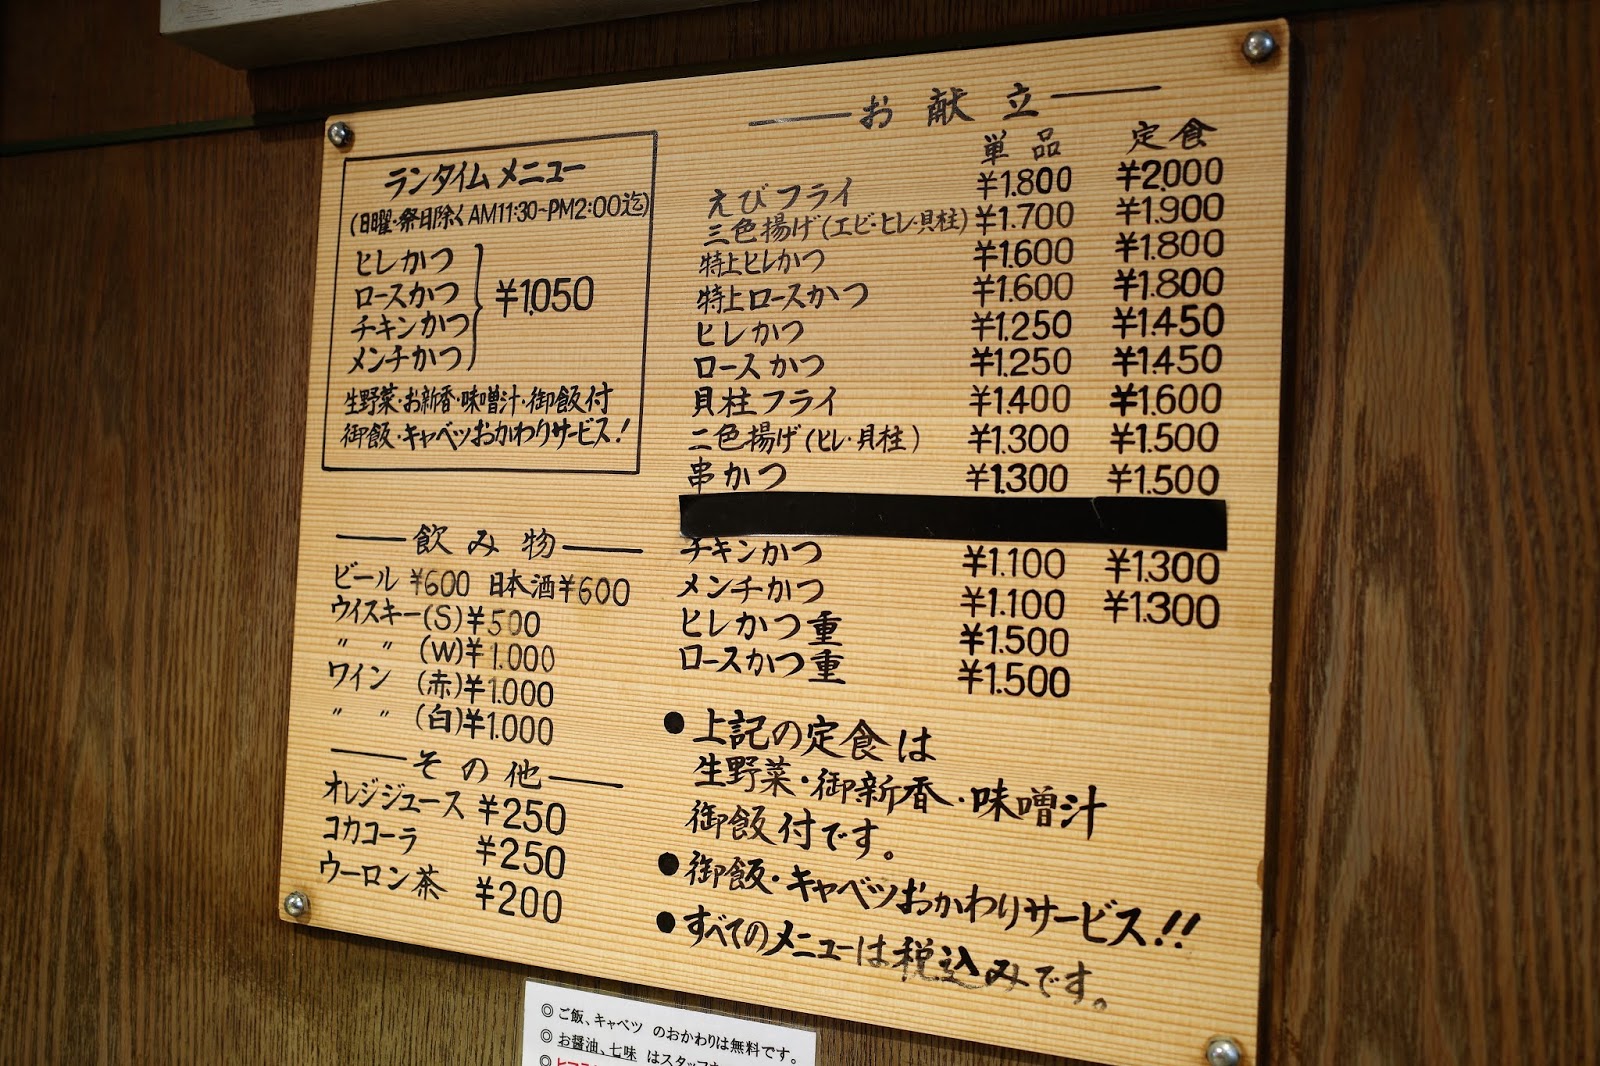 ランタイムメニュー
(日曜・祭日除く AM11:30~PM2:00迄)
ヒレかつ
ロースかつ
チキンかつ
メンチかつ
¥1,050
生野菜・お新香・味噌汁・御飯付
御飯・キャベツおかわりサービス!
飲み物
ビール ¥600 日本酒 ¥600
ウイスキー(S) ¥500
〃 〃 (W) ¥1.000
ワイン (赤) ¥1.000
〃 〃 (白) ¥1.000
その他
オレジジュース ¥250
コカコーラ ¥250
ウーロン茶 ¥200
お献立
単品 定食
えびフライ ¥1.800 ¥2.000
三色揚げ(エビ・ヒレ・貝柱) ¥1.700 ¥1.900
特上ヒレかつ ¥1.600 ¥1.800
特上ロースかつ ¥1.600 ¥1.800
ヒレかつ ¥1.250 ¥1.450
ロースかつ ¥1.250 ¥1.450
貝柱フライ ¥1.400 ¥1.600
二色揚げ(ヒレ・貝柱) ¥1.300 ¥1.500
串かつ ¥1.300 ¥1.500
チキンかつ ¥1.100 ¥1.300
メンチかつ ¥1.100 ¥1.300
ヒレかつ重 ¥1.500
ロースかつ重 ¥1.500
●上記の定食は
生野菜・御新香・味噌汁
御飯付です。
●御飯・キャベツおかわりサービス!!
●すべてのメニューは税込みです。
◎ご飯、キャベツ のおかわりは無料です。
◎お醤油、七味 はスタッフ